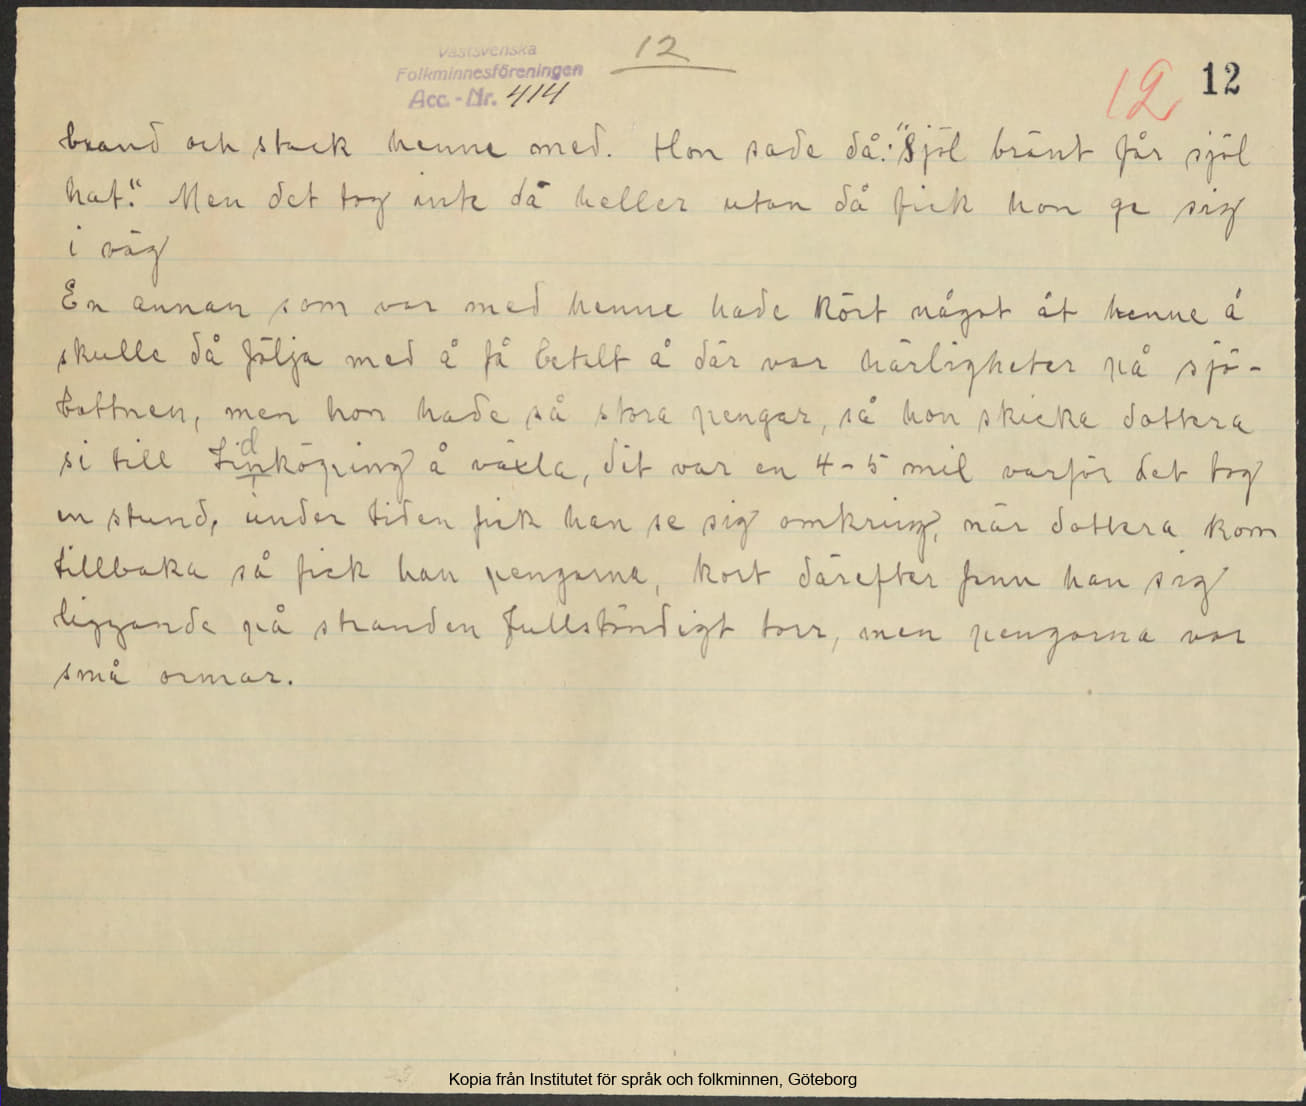 Västsvenska
Folkminnesföreningen
Acc.-Nr. 414
12
12
12
brand och stack henne med. Hon sade då: "Sjöl bränt får sjöl
hat". Men det tog inte då heller utan då fick hon ge sig
i väg
En annan som var med henne hade kört något åt henne å
skulle då följa med å få betalt å där var härligheter på sjö-
bottnen, men hon hade så stora pengar, så hon skicka dottera
si till Lidköping å växla, dit var en 4-5 mil varför det tog
en stund, under tiden fick han se sig omkring, när dottera kom
tillbaka så fick han pengarna, kort därefter fann han sig
liggande på stranden fullständigt torr, men pengarna var
små ormar.
Kopia från Institutet för språk och folkminnen, Göteborg